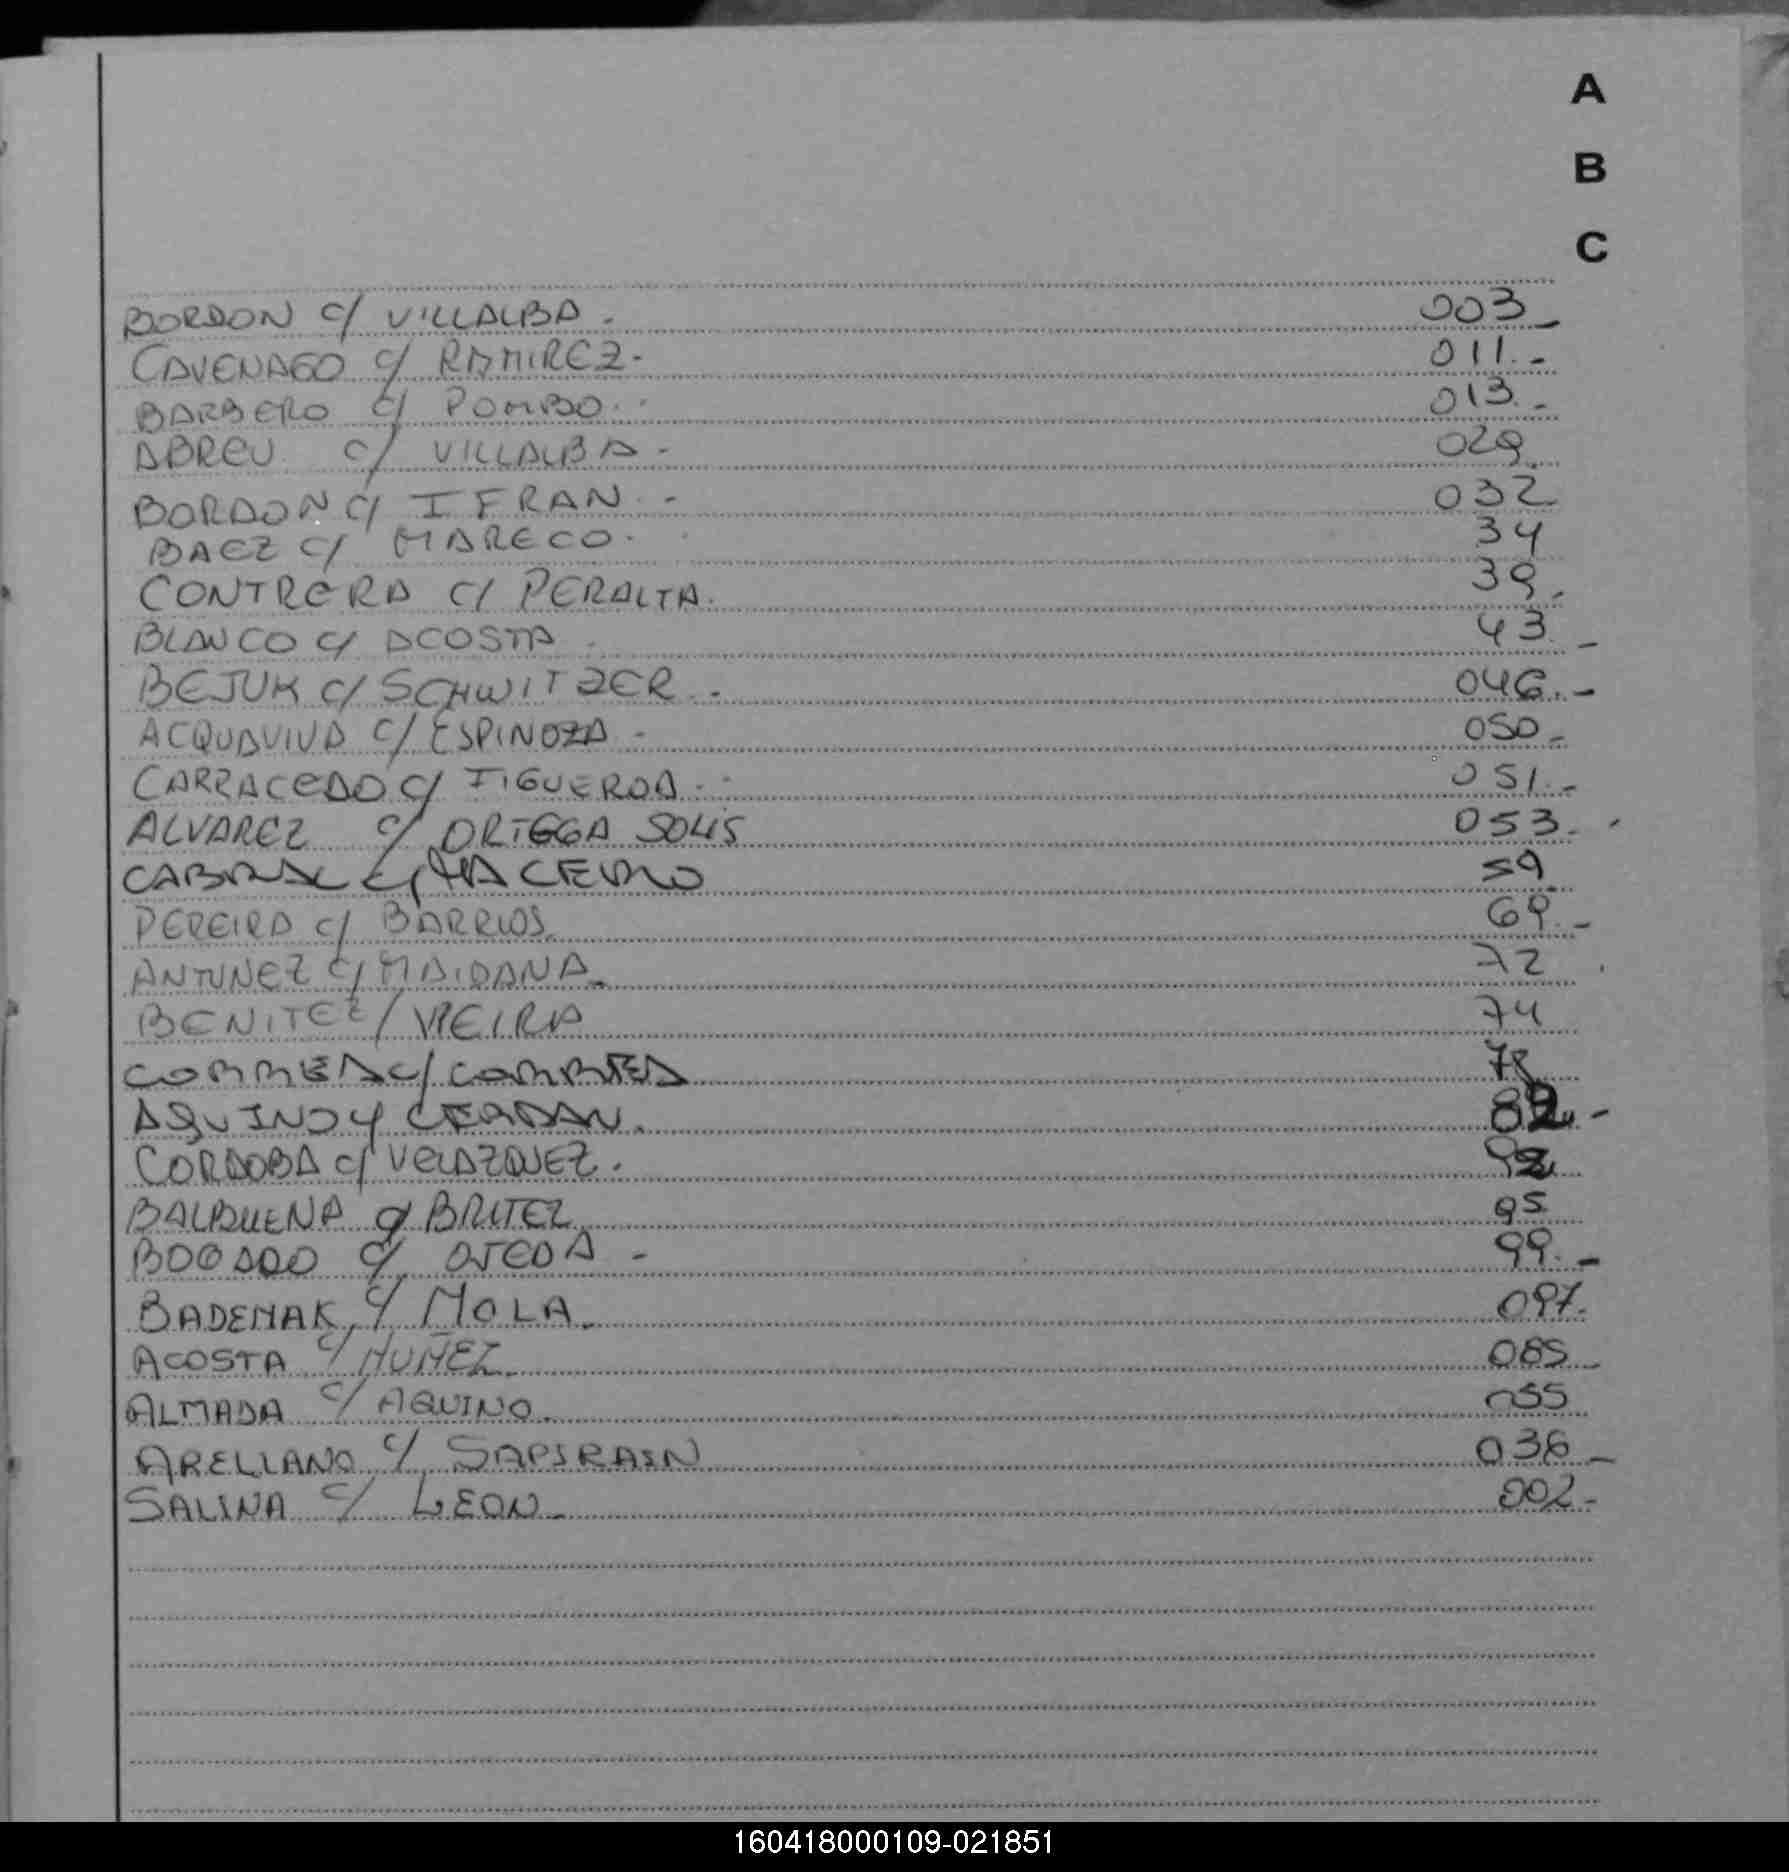 A
B
C
BORDON c/ VILLALBA. 003_
CAVENAGO c/ RAMIREZ- 011.-
BARBERO c/ POMBO. 013.-
ABREU c/ VILLALBA- 029.
BORDON c/ IFRAN.- 032
BAEZ c/ MARECO. 34
CONTRERA c/ PERALTA. 39.
BLANCO c/ ACOSTA. 43.-
BEJUK c/ SCHWITZER. 046.-
ACQUAVIVA c/ ESPINOZA- 050-
CARRACEDO c/ FIGUEROA. 051.-
ALVAREZ c/ ORTEGA SOLIS 053.-
CABRAL c/ 59.
PEREIRA c/ BARRIOS. 69.-
ANTUNEZ c/ MAIDANA. 72
BENITEZ / VIEIRA 74
CORREA c/ CORREA 78
AQUINO c/ CERDAN. 82.-
CORDOBA c/ VELAZQUEZ.
BALBUENA c/ BRITEZ 95
BOGADO c/ OJEDA- 99.-
BADEMAK c/ MOLA. 097.
ACOSTA c/ NUÑEZ. 085
ALMADA c/ AQUINO. 055
ARELLANO c/ SAPIRAIN 036_
SALINA c/ LEON. 002-
160418000109-021851